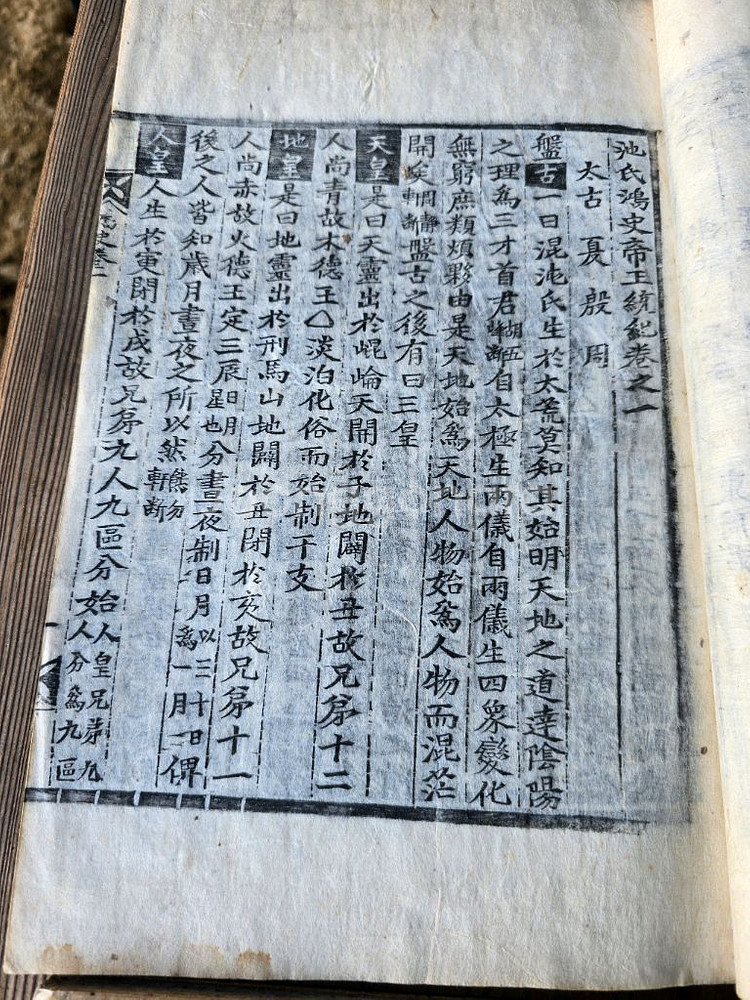 池氏鴻史帝王統紀卷之一
太古 夏 殷 周
盤古一曰混沌氏生於太荒莫知其始明天地之道達陰陽
之理爲三才首君胡五峯斷自太極生兩儀自兩儀生四象變化
無窮庶類煩夥由是天地始爲天地人物始爲人物而混茫
開矣周靜軒斷盤古之後有曰三皇
天皇是曰天靈出於崐崘天開於子地闢於丑故兄弟十二
人尚青故木德王△淡泊化俗而始制干支
地皇是曰地靈出於刑馬山地闢於丑閉於亥故兄弟十一
人尚赤故火德王定三辰日月星也分晝夜制日月以三十日爲一月俾
後之人皆知歲月晝夜之所以然熊勿軒斷
人皇人生於寅閉於戌故兄弟九人九區分始人皇兄弟九人分爲九區